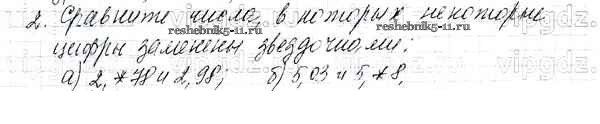 2. Сравните числа, в которых некоторые
reshebnik5-11.ru
цифры заменены звездочками:
а) 2,*78 и 2,98; б) 5,03 и 5,*8.